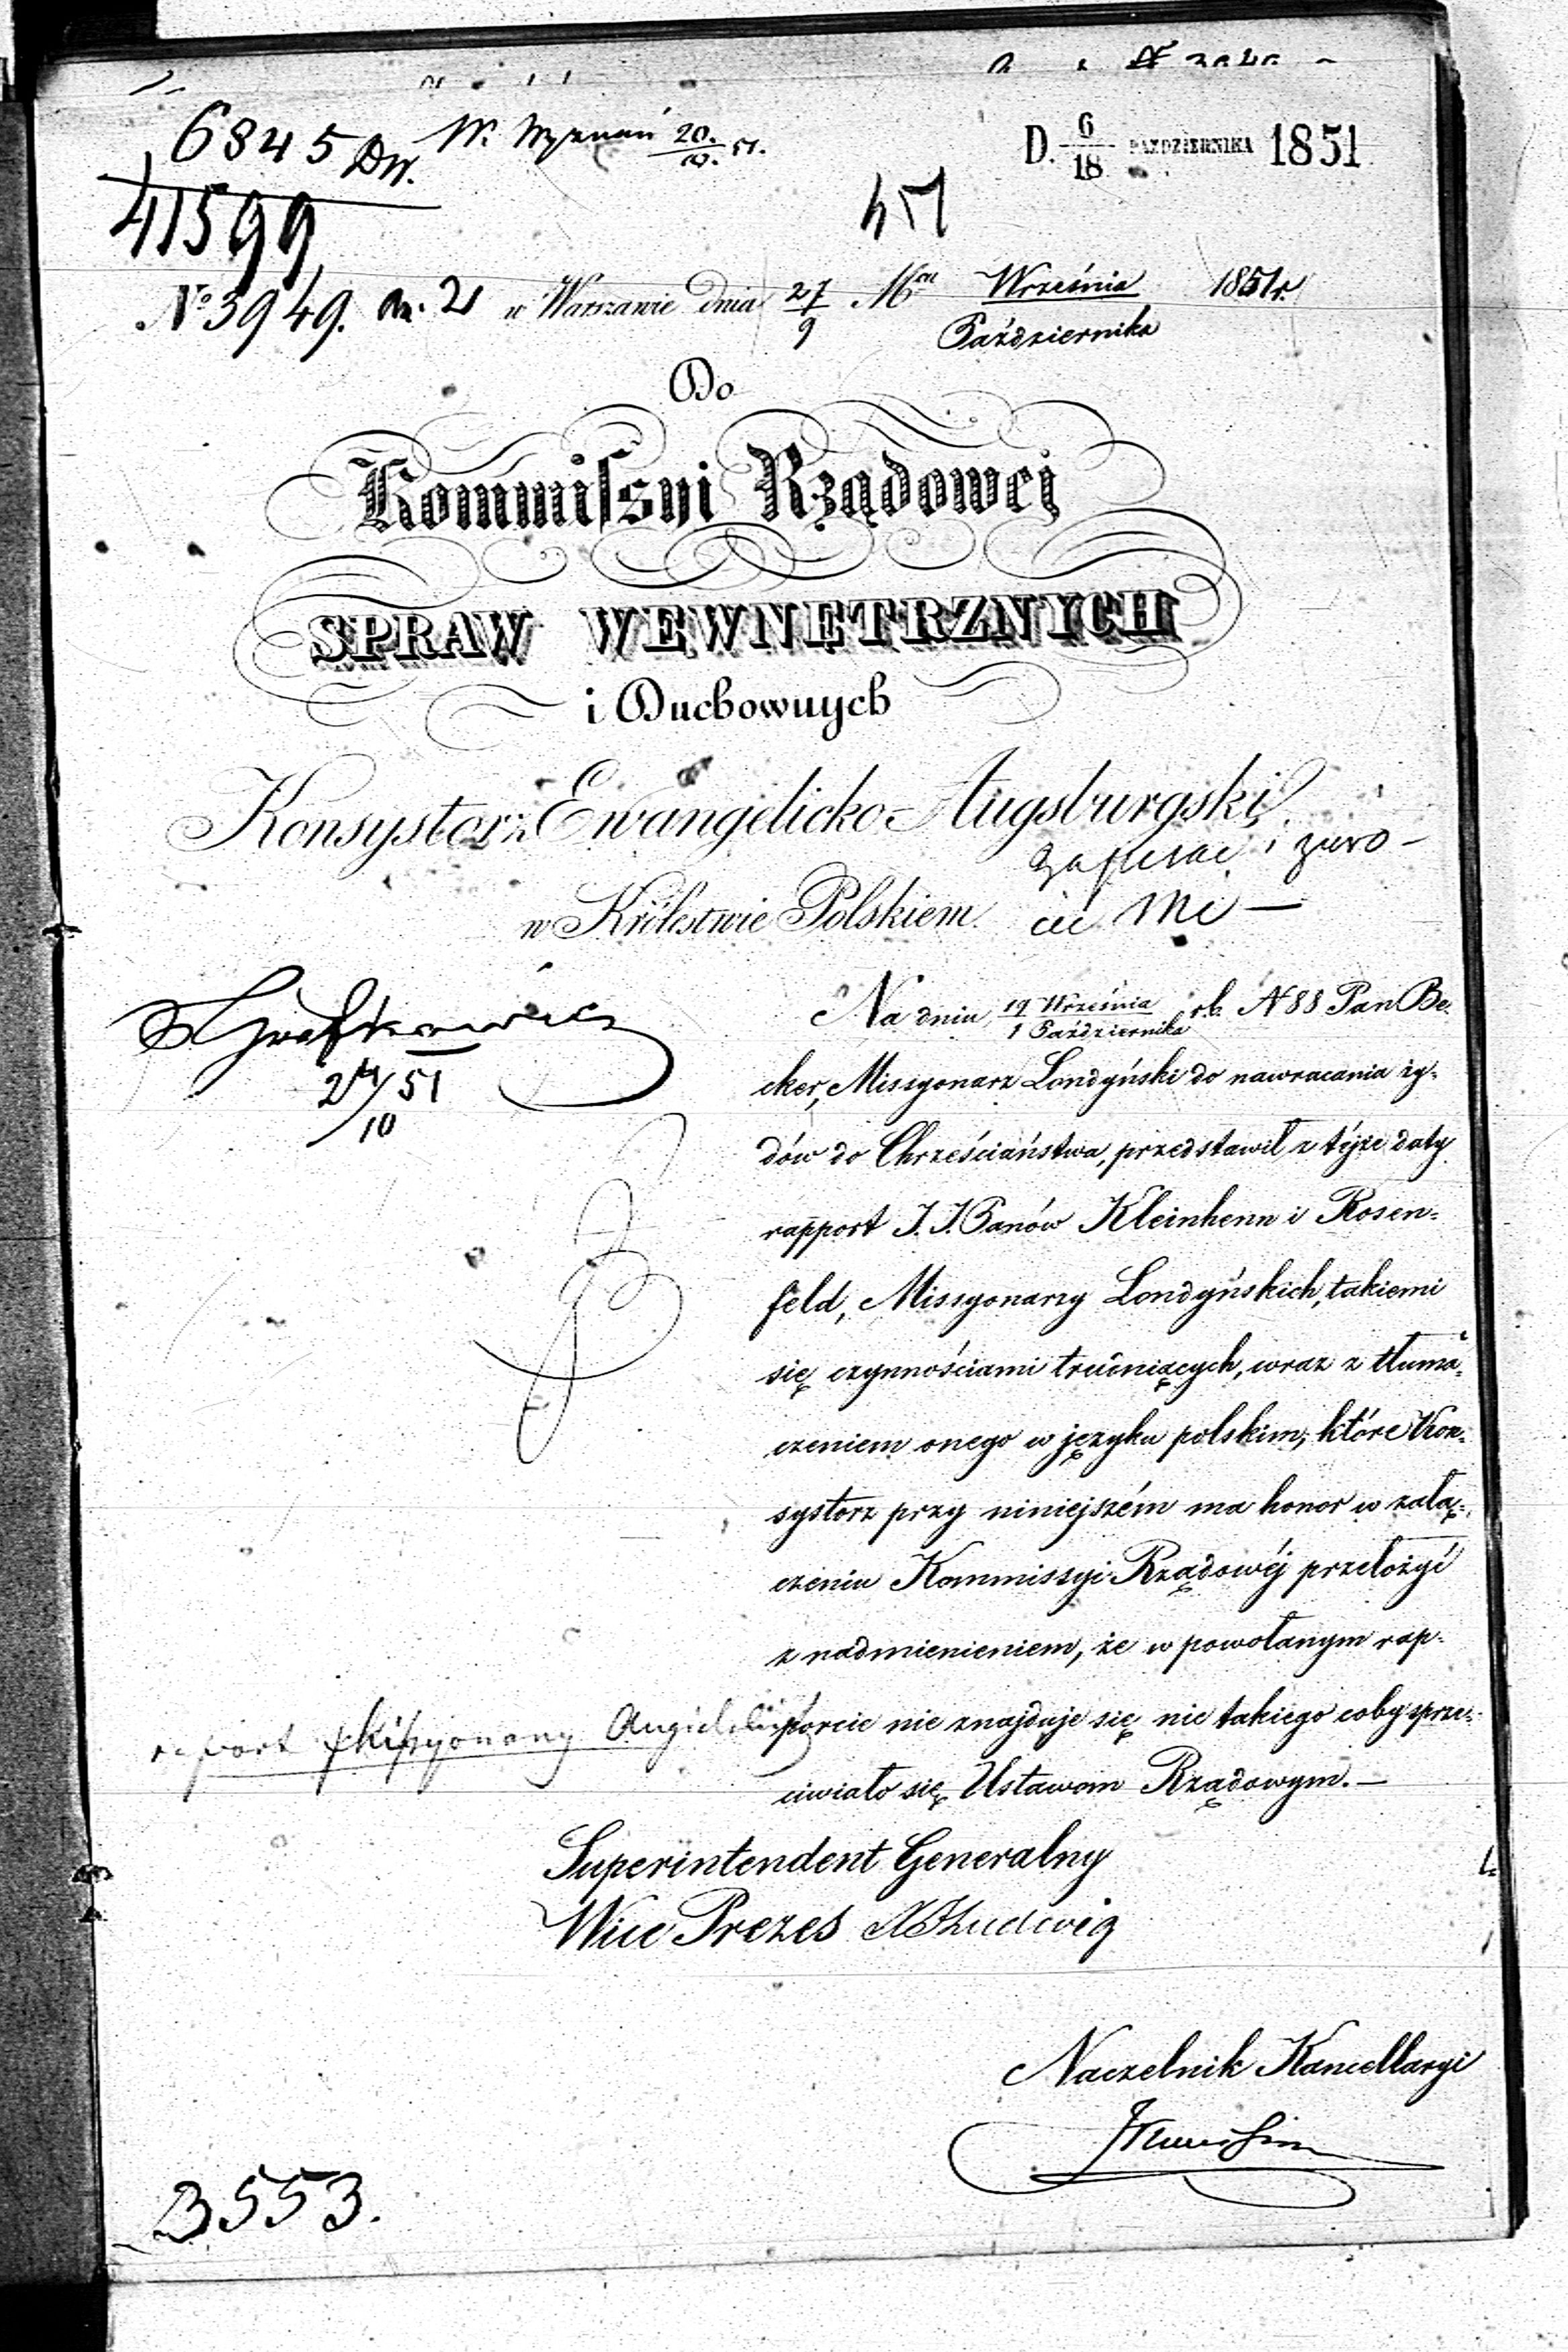 6845 Dw. W. Wyznań 20./10. 51.
D. 6/18 PAŹDZIERNIKA 1851
41599
457
No 3949. w Warszawie dnia 27/9 Mca Września/Października 1851 r.
Do
Kommissyi Rządowej
SPRAW WEWNĘTRZNYCH
i Duchownych
Konsystorz Ewangelicko-Augsburgski
w Królestwie Polskiem.
zapisać i zwró-
cić mi —
24/10 51
Na dniu 19 Września/1 Października r.b. N 88 Pan Be-
cker, Missyonarz Londyński do nawracania ży-
dów do Chrześciaństwa, przedstawił z téjże daty
rapport J. J. Panów Kleinhenn i Rosen-
feld, Missyonarzy Londyńskich, takiemi
się czynnościami trudniących, wraz z tłuma-
czeniem onego w języku polskim, które Kon-
systorz przy niniejszém ma honor w załą-
czeniu Kommissyi Rządowéj przełożyć
z nadmienieniem, że w powołanym rap-
porcie nie znajduje się nic takiego coby sprze-
ciwiało się Ustawom Rządowym. —
raport
Superintendent Generalny
Wice Prezes Ludwig
Naczelnik Kancellaryi
3553.